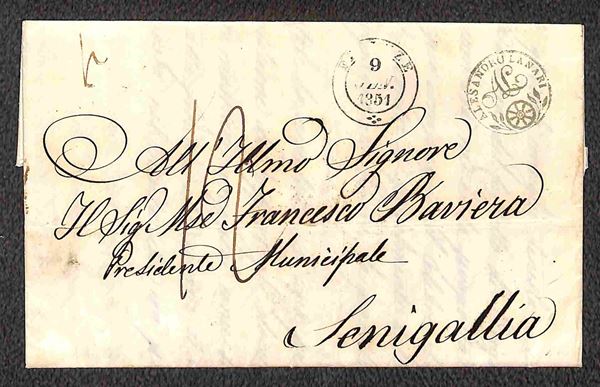 FIRENZE
9
GEN.
1851
ALESANDRO LANARI
AL
All' Illmo Signore
Il Sig Mse Francesco Baviera
Presidente Municipale
Senigallia
12